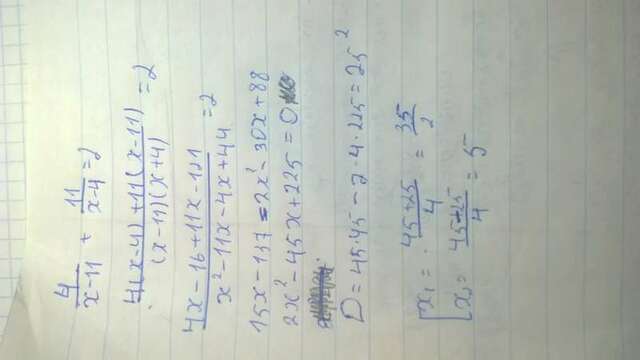 4/(x-11) + 11/(x-4) = 2
(4(x-4)+11(x-11))/((x-11)(x+4)) = 2
(4x-16+11x-121)/(x²-11x-4x+44) = 2
15x-137=2x²-30x+88
2x²-45x+225=0
D=45·45-2·4·225=25²
[x₁= (45+25)/4 = 35/2
[x₂= (45-25)/4 = 5